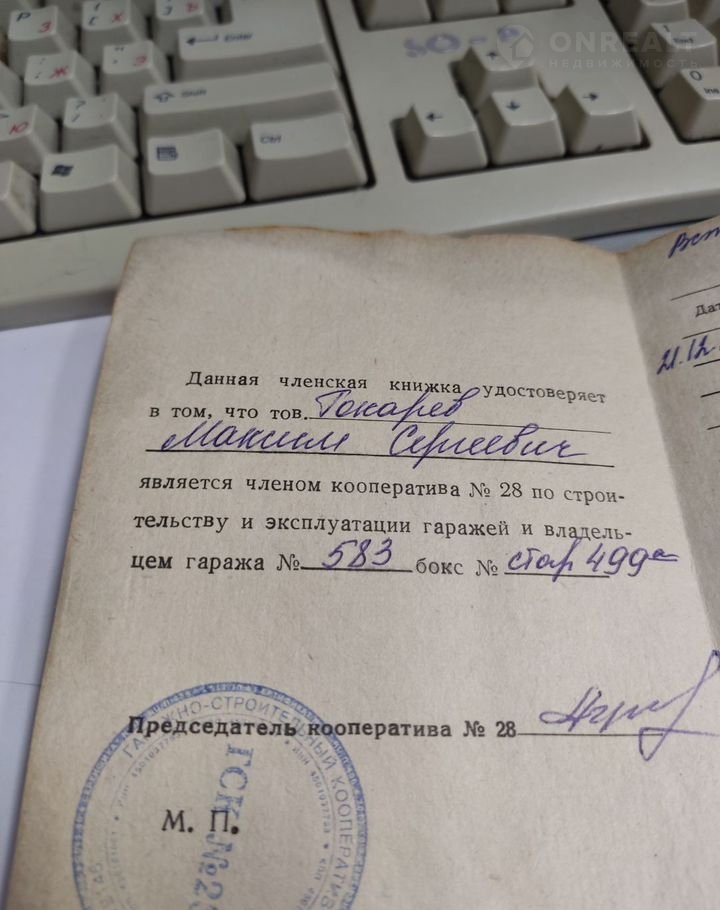 ONREALT
НЕДВИЖИМОСТЬ
Enter
Shift
Ctrl
Ins
Данная членская книжка удостоверяет
в том, что тов. Токарев
Максим Сергеевич
является членом кооператива № 28 по строи-
тельству и эксплуатации гаражей и владель-
цем гаража № 583 бокс № стар 499а
Председатель кооператива № 28
М. П.
ГАРАЖНО-СТРОИТЕЛЬНЫЙ КООПЕРАТИВ
ГСК №28
Дат
21.12.